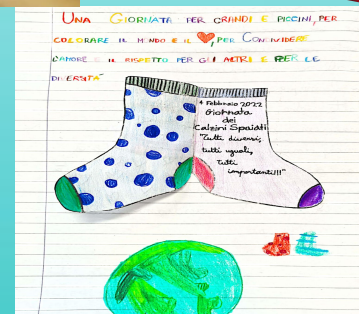 UNA GIORNATA PER GRANDI E PICCINI, PER
COLORARE IL MONDO E IL ❤, PER CONDIVIDERE
L'AMORE E IL RISPETTO PER GLI ALTRI E PER LE
DIVERSITÀ
4 Febbraio 2022
Giornata
dei
Calzini Spaiati
"Tutti diversi,
tutti uguali,
tutti
importanti!!!"